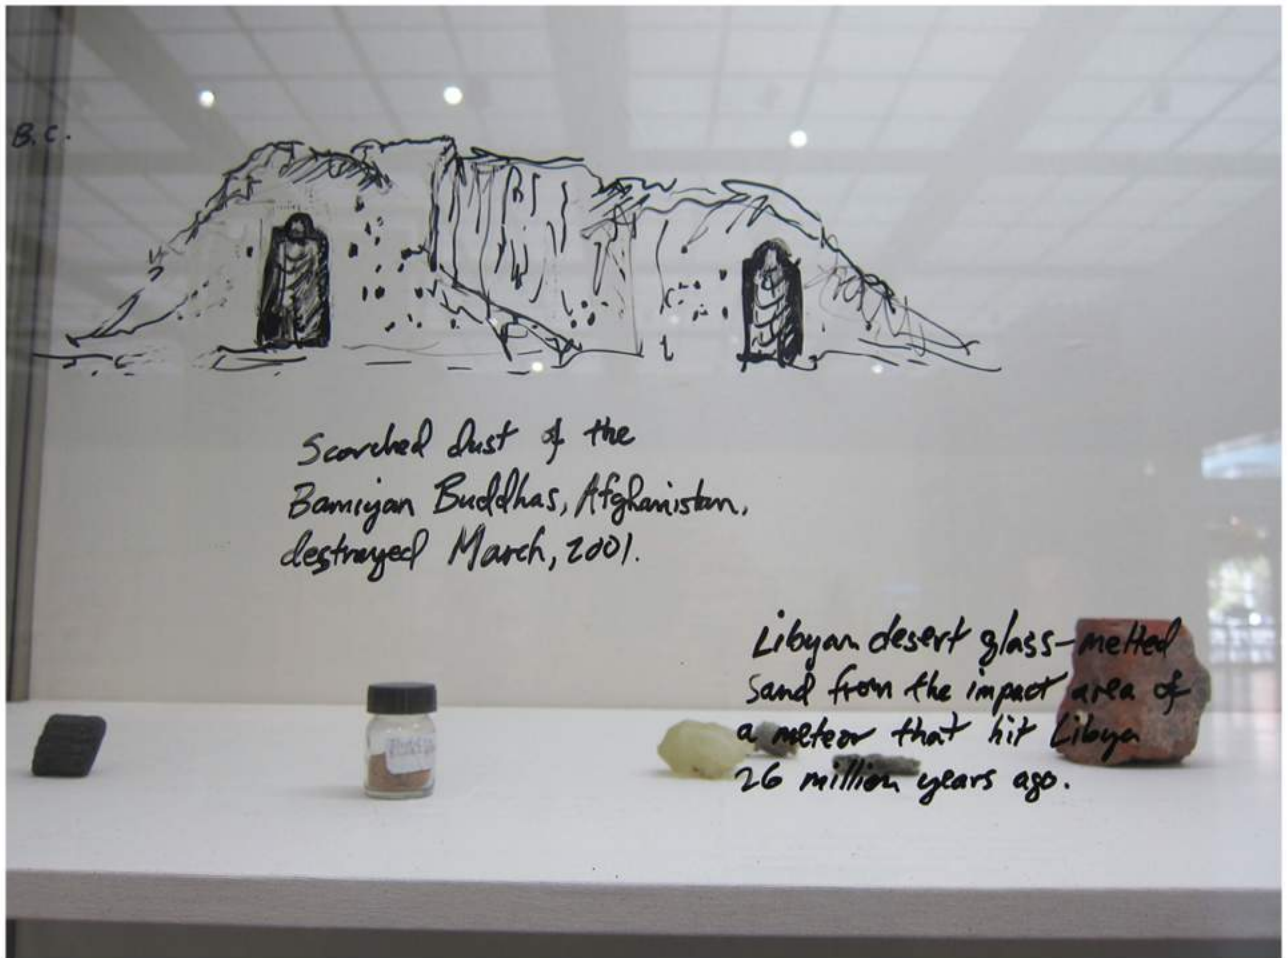 B.C.
Scorched dust of the
Bamiyan Buddhas, Afghanistan,
destroyed March, 2001.
Libyan desert glass-melted
sand from the impact area of
a meteor that hit Libya
26 million years ago.